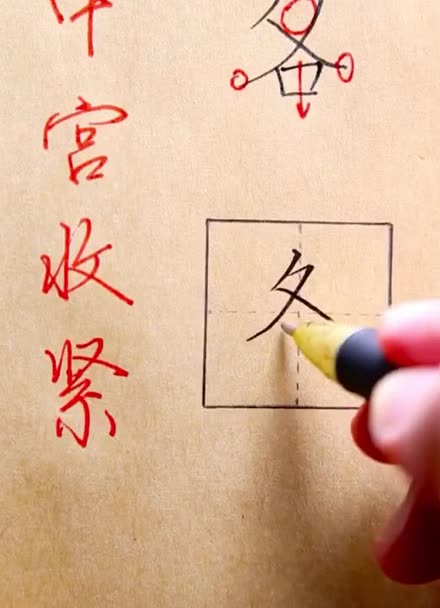 中宫收紧
各
夂